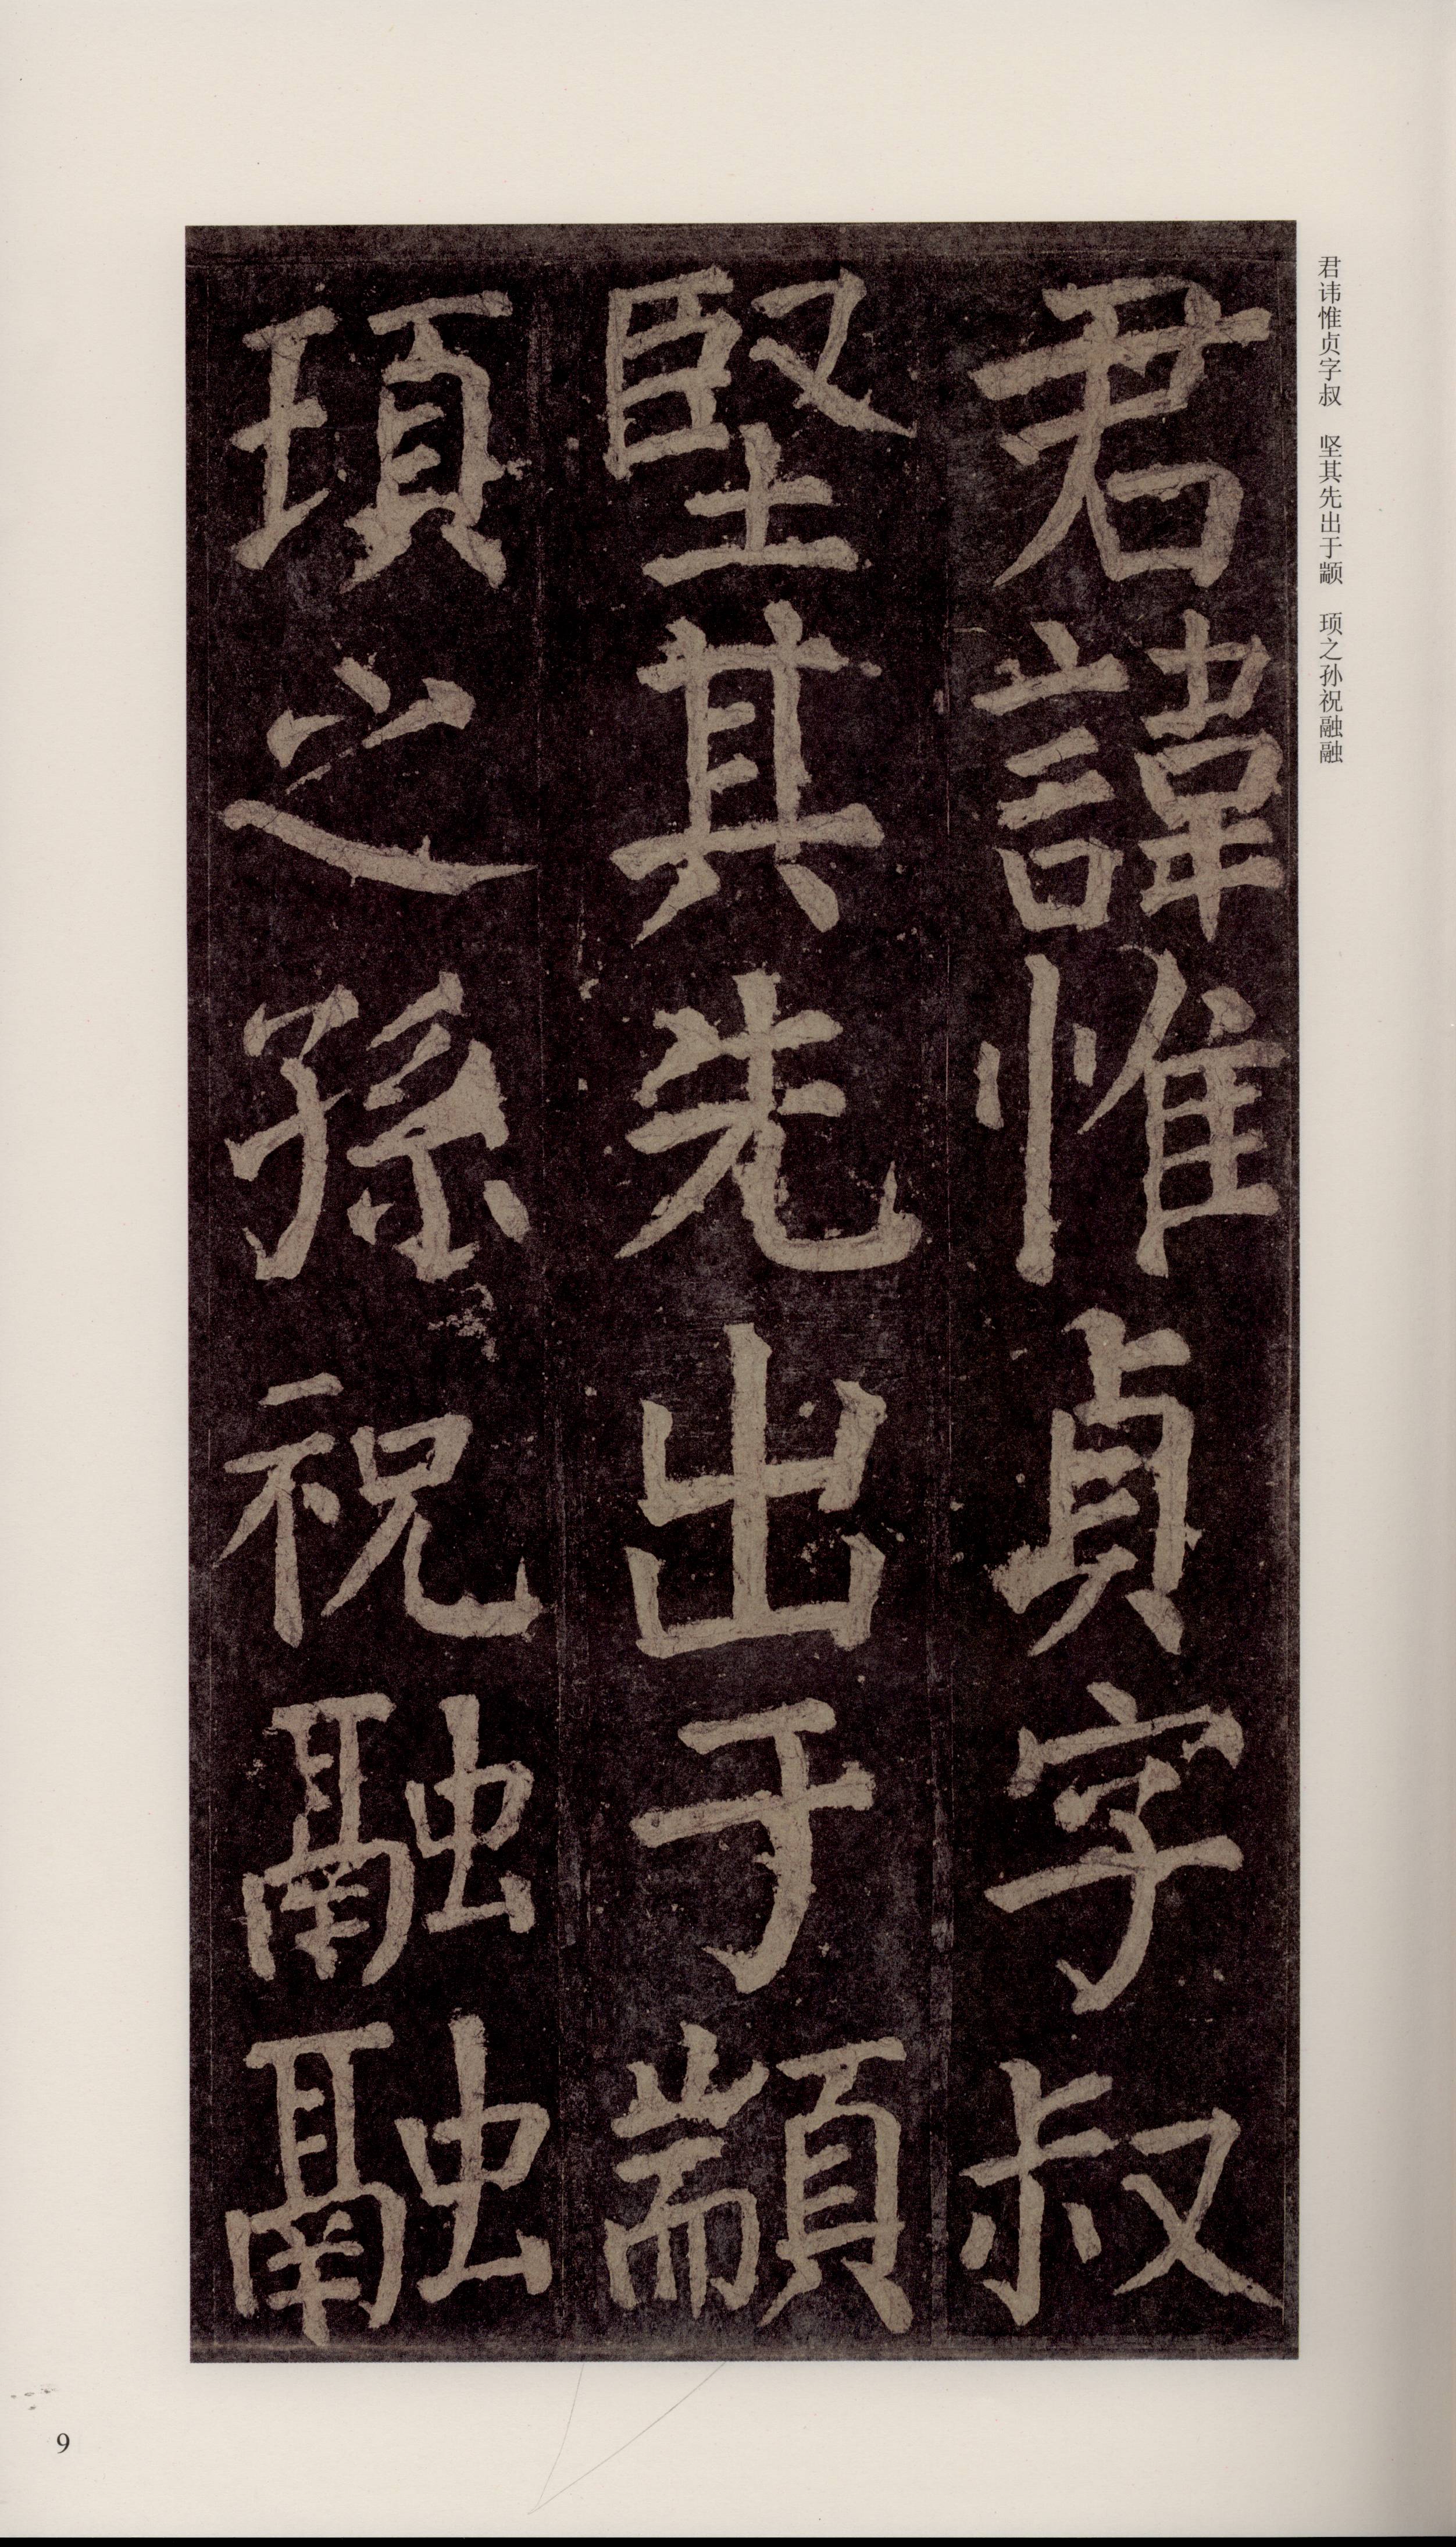 君諱惟貞字叔
堅其先出于顓
頊之孫祝融融
君讳惟贞字叔　坚其先出于颛　顼之孙祝融融
9